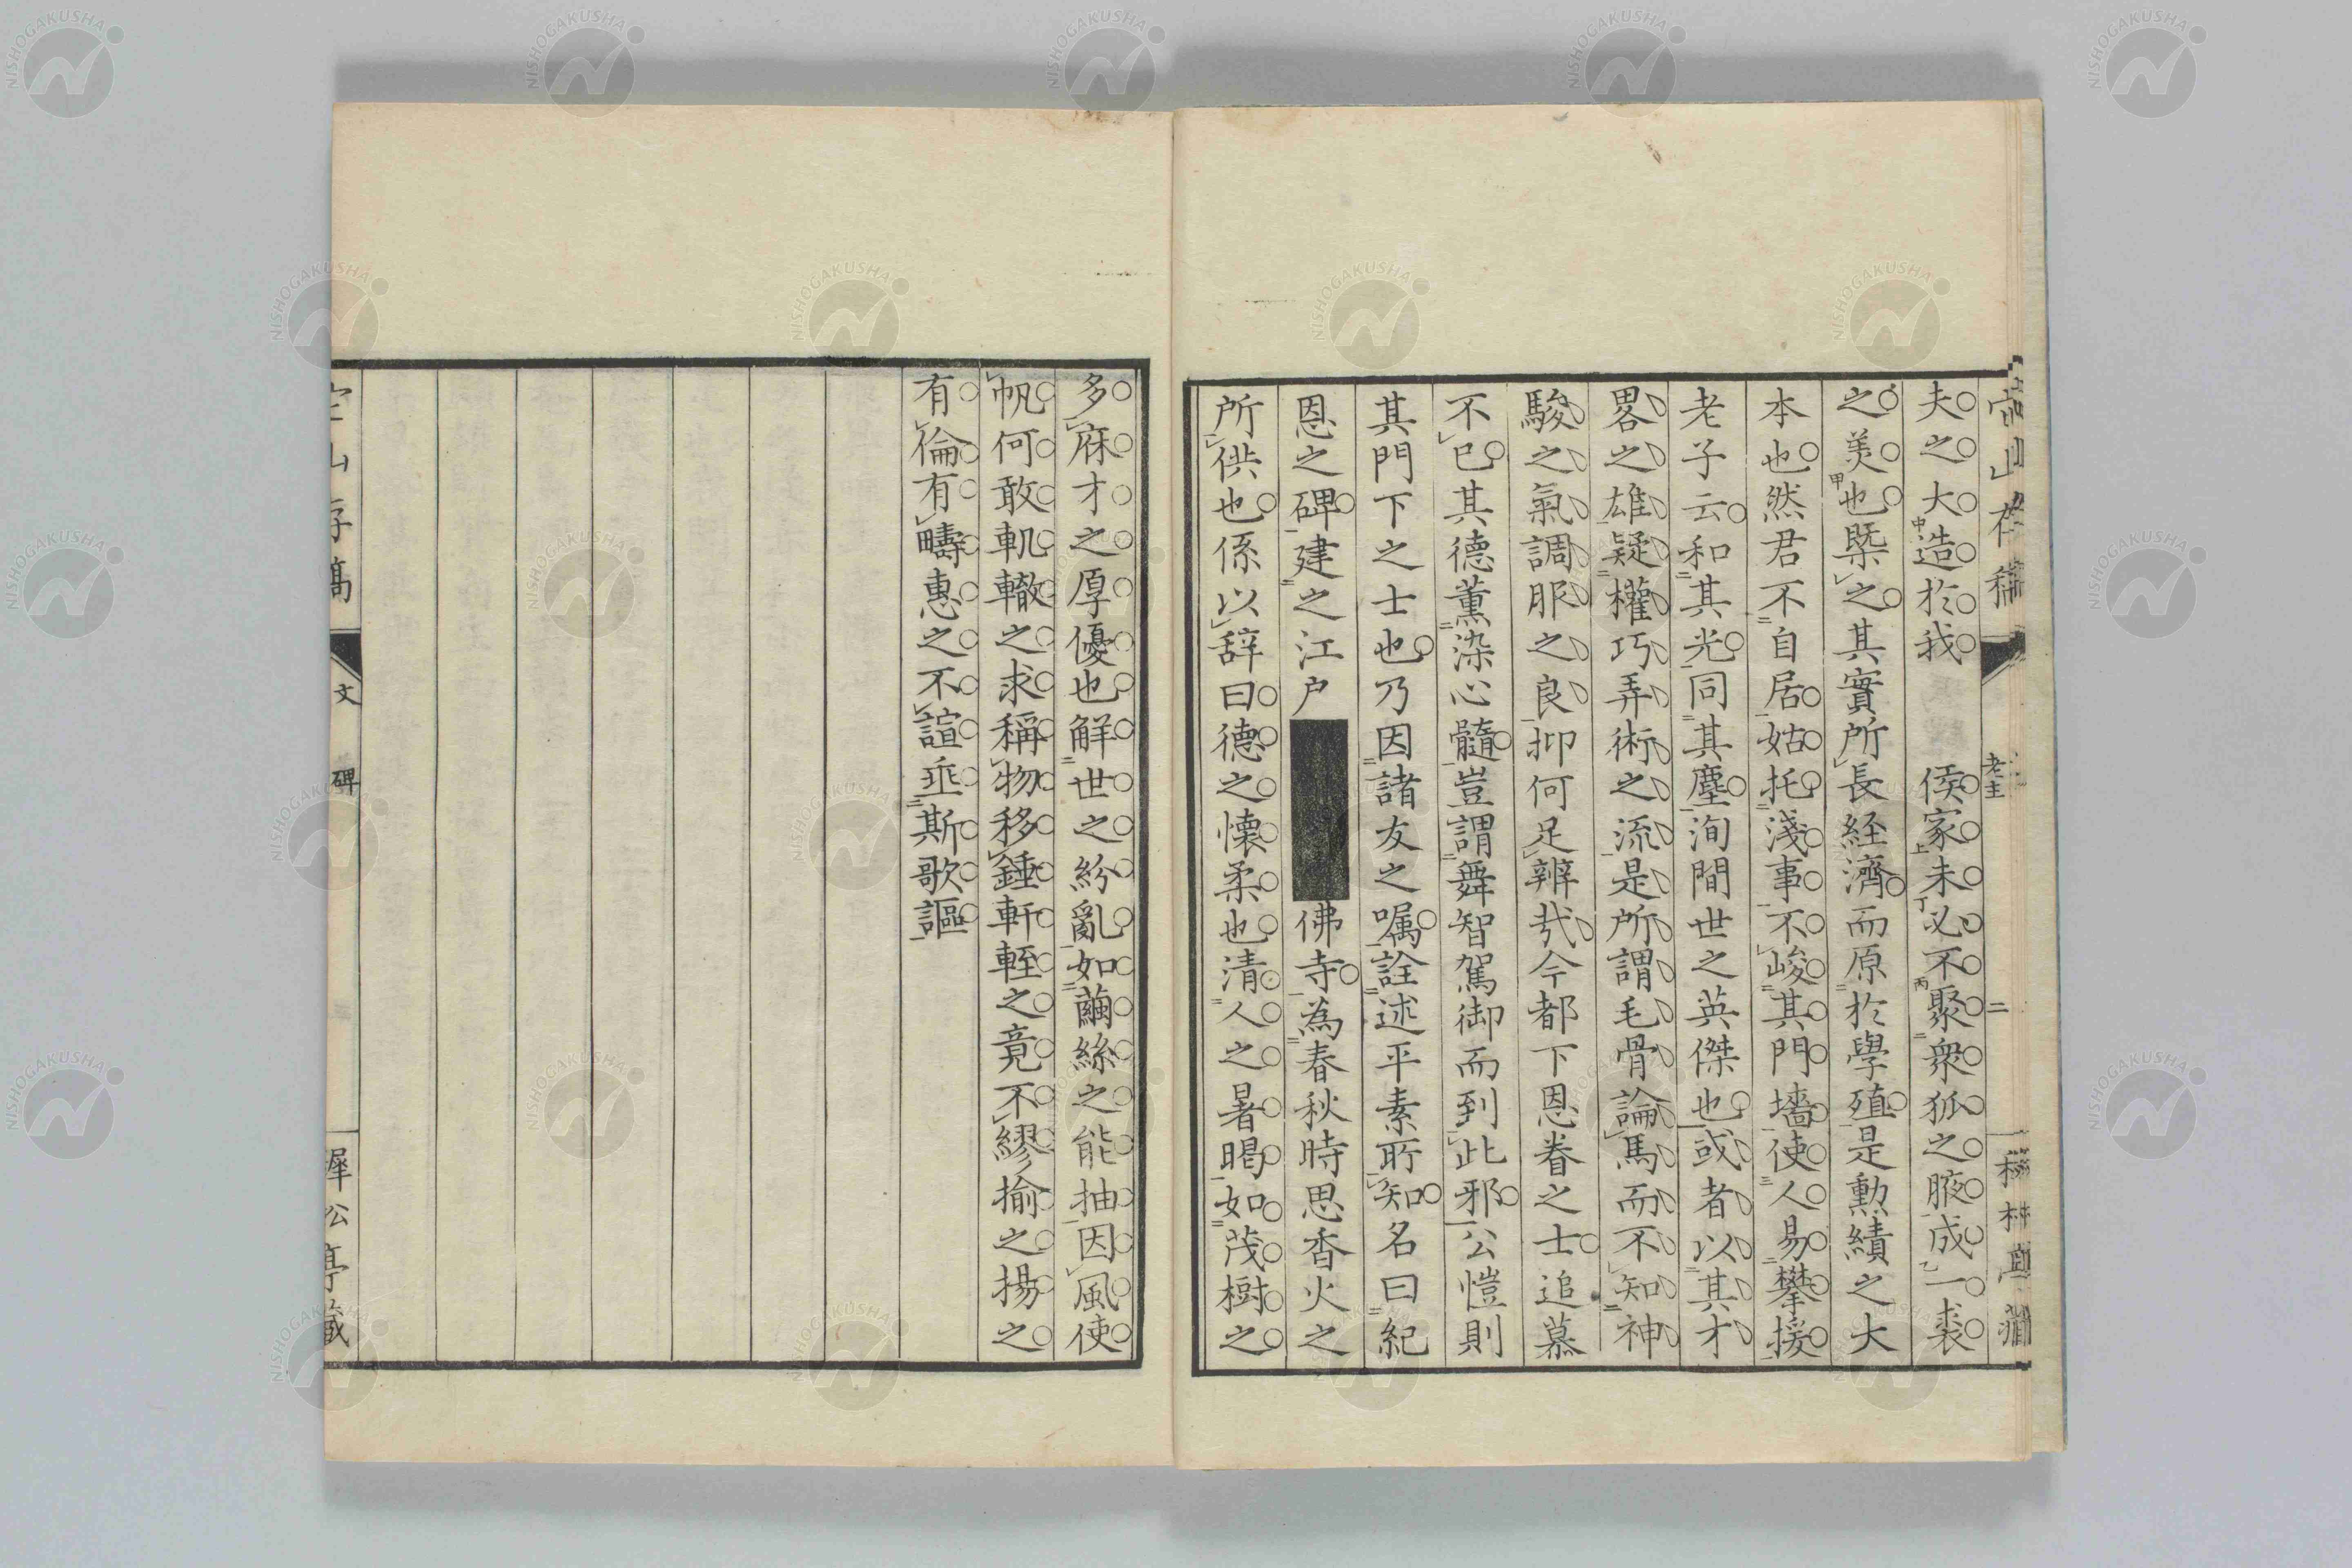 夫之大造於我 侯家未必不聚衆狐之腋成一裘
之美也槩之其實所長経濟而原於學殖是勲績之大
本也然君不自居姑托淺事不峻其門墻使人易攀援
老子云和其光同其塵洵間世之英傑也或者以其才
畧之雄疑權巧弄術之流是所謂毛骨論馬而不知神
駿之氣調服之良抑何足辨哉今都下恩眷之士追慕
不已其德薫染心髓豈謂舞智駕御而到此邪公愷則
其門下之士也乃因諸友之嘱詮述平素所知名曰紀
恩之碑建之江户 佛寺為春秋時思香火之
所供也係以辞曰德之懐柔也清人之暑暍如茂樹之
多庥才之厚優也解世之紛亂如繭絲之能抽因風使
帆何敢軏轍之求稱物移錘軒輊之竟不繆揄之揚之
有倫有疇惠之不諠垂斯歌謳
文 碑
NISHOGAKUSHA